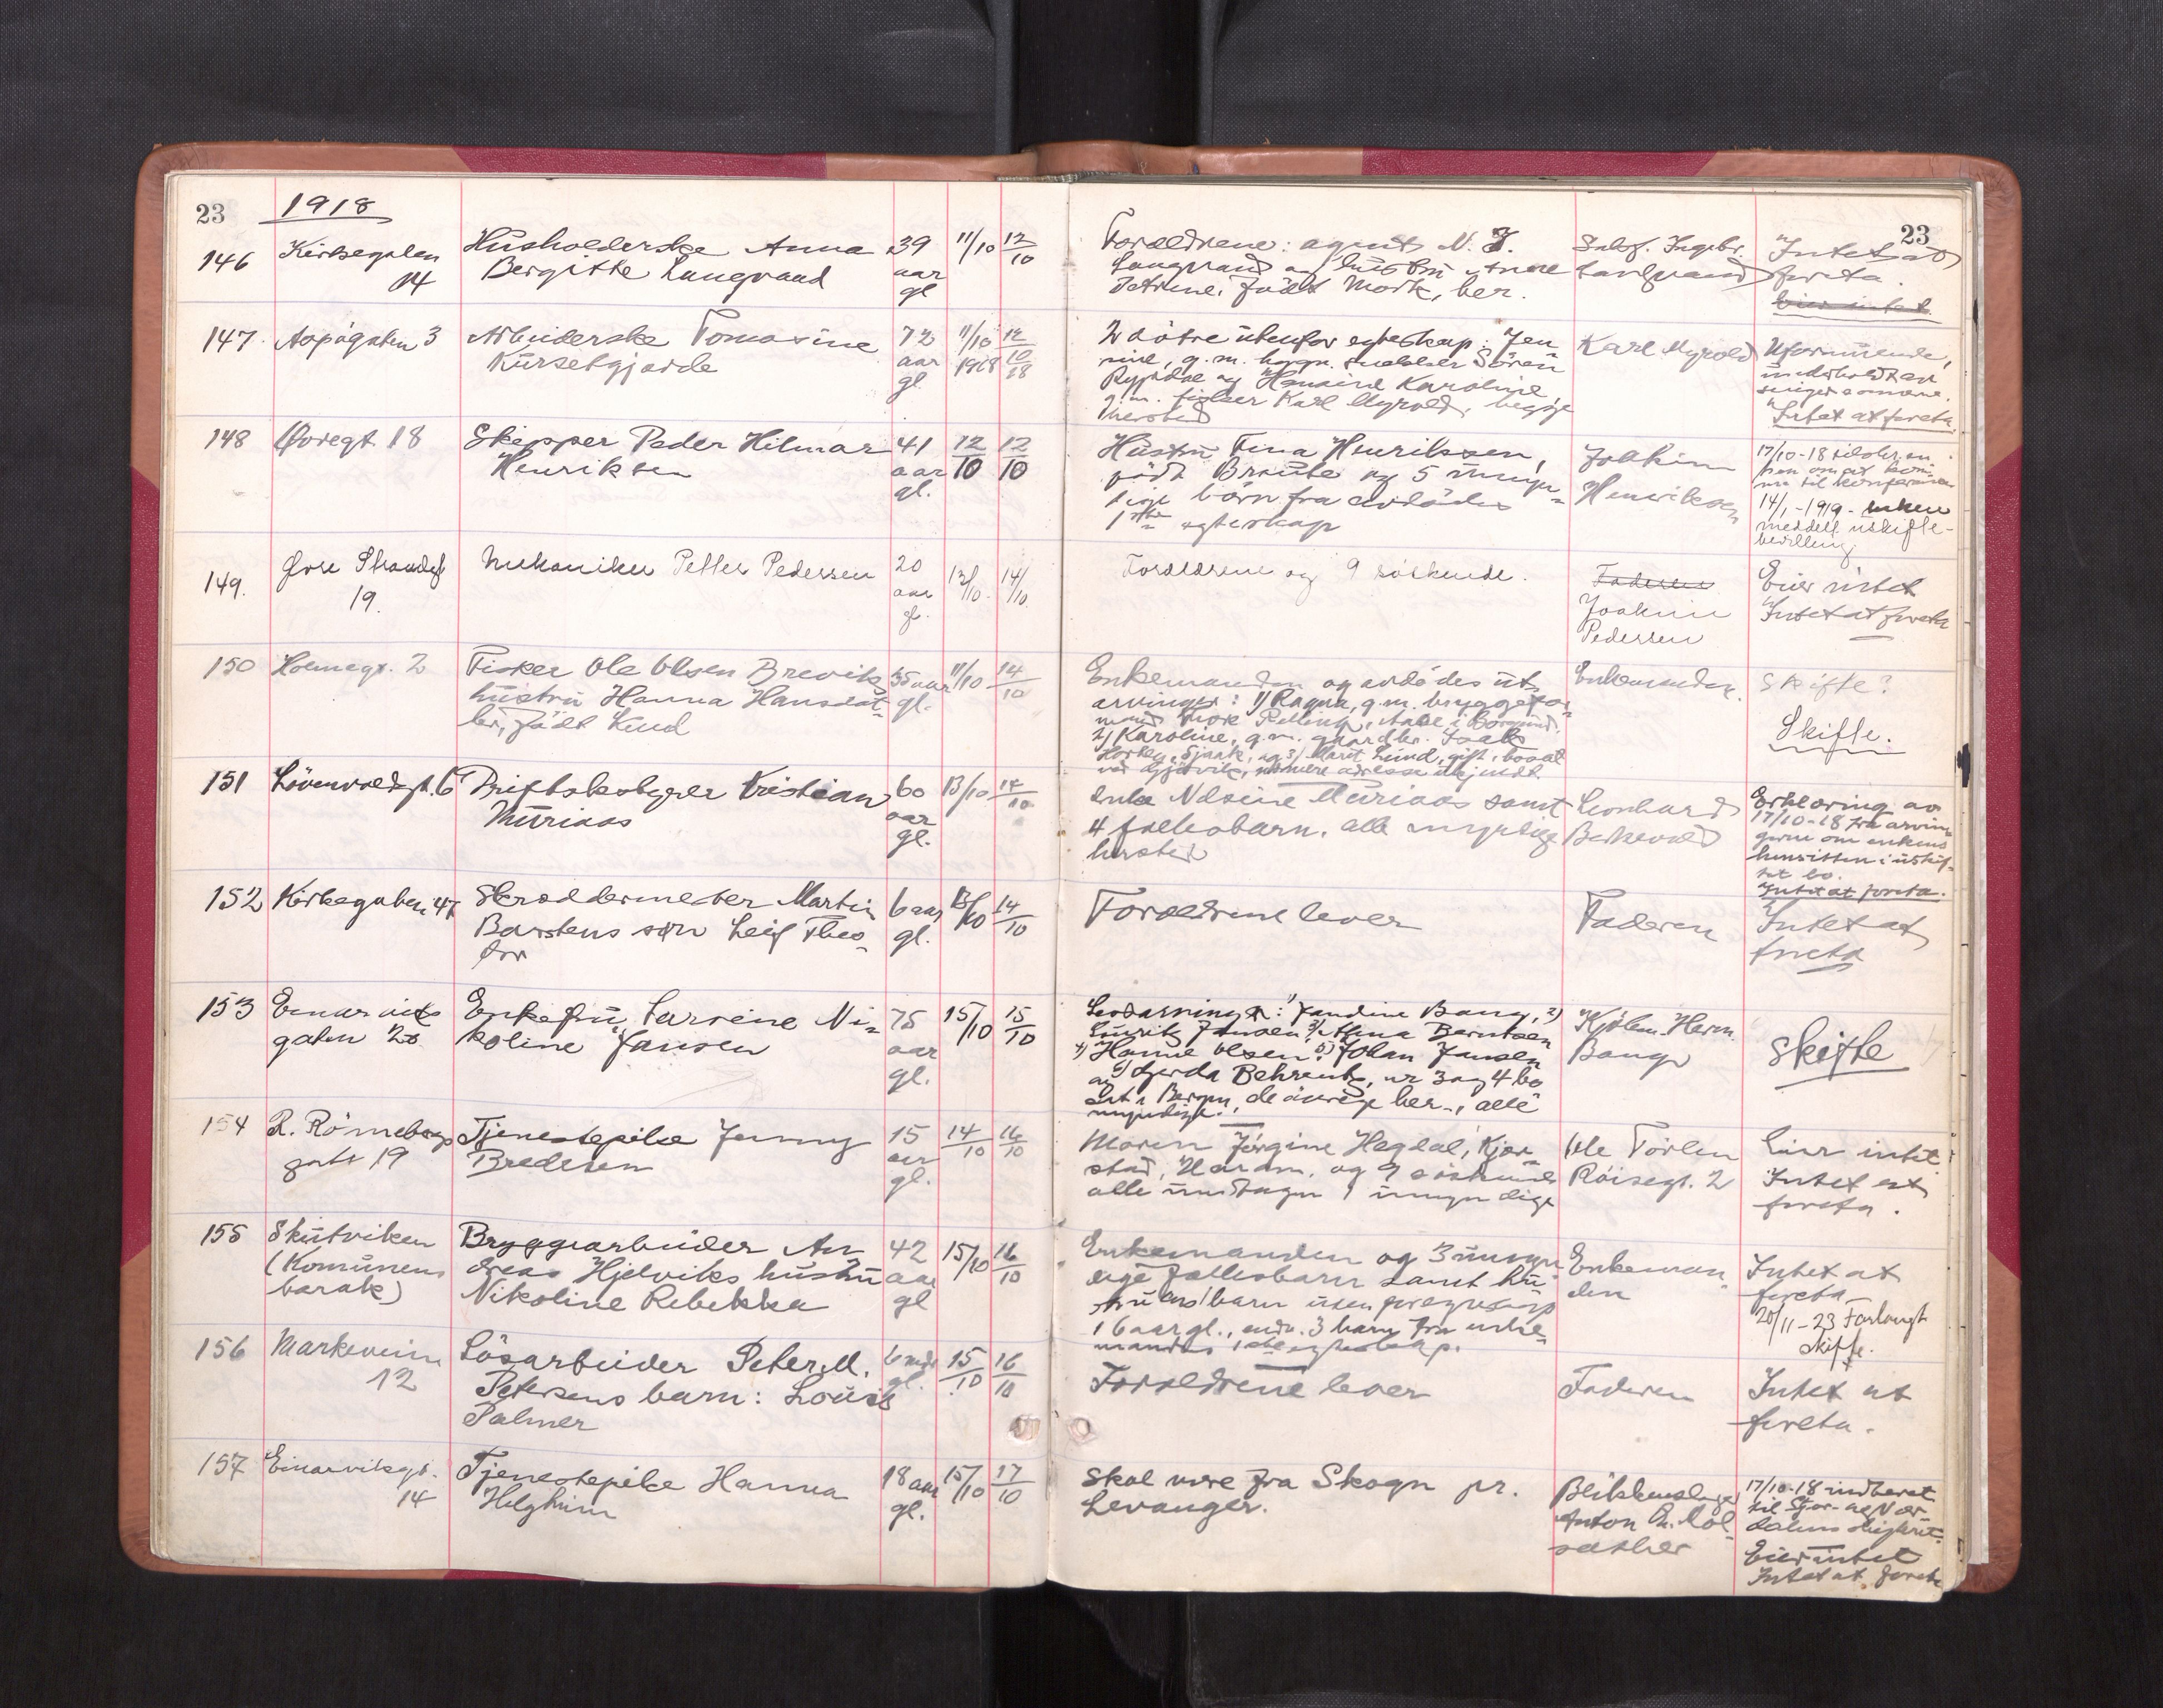 23 1918
146 Kirkegaten 14
Husholderske Anna
Bergitte Langvand
39 aar gl
11/10 12/10
Forældrene: agent N. J.
Langvand og hustru Anne
Petrine, født Mork, her.
Ingebr.
Langvand
23
"Intet at
foreta.
Eier intet
147 Aspøgaten 3
Arbeiderske Tomasine
Kursetgjærde
72 aar gl
11/10 1918 12/10 18
2 døtre utenfor egteskap: Jen
nine, g.m. Søren
Rypdal og Karoline,
g.m. fisker Karl Myrvold, begge
hersteds
Karl Myrvold
Uformuende,
underholdt av
"Intet at foreta.
148 Øvregt. 18
Skipper Peder Hilmar
Henriksen
41 aar gl.
12/10 12/10
Hustru Tina Henriksen,
født Braute og 5 umyn-
dige børn fra avdødes
1ste egteskap
Joakim
Henriksen
17/10-18
14/1-1919- enken
meddelt uskifte-
bevilling
149. Øvre Strandgt
19.
Mekaniker Petter Pedersen
20 aar gl.
13/10. 14/10.
Forældrene og 9 søskende.
Faderen
Joakim
Pedersen
Eier intet
"Intet at foreta
150 Holmegt. 2
Fisker Ole Olsen Breviks
hustru Hanna Hansdat-
ter, født Lund
35 aar gl.
11/10 14/10
Enkemanden og avdødes ut-
arvinger: 1) Ragna, g.m. bryggefor-
mand
2) Karoline, g.m. gaardbr. Isak
og 3) Marit Lund, gift, bosat
ved Gjøvik, nærmere adresse ukjendt.
Enkemanden.
Skifte?
Skifte.
151 Løvenvoldgt. 6
Driftsbestyrer Kristian
Muriaas
60 aar gl.
13/10 14/10
Enke Nelsine Muriaas samt
4 fællesbarn, alle myndige
hersteds
Leonhard
Erklæring av
17/10-18 fra arvin-
gerne om enkens
hensitten i uskif-
tet bo.
"Intet at foreta.
152 Kirkegaten 47
Skræddermester Martin
Barstens søn Leif Theo-
dor
6 aar gl.
13/10 14/10
Forældrene lever
Faderen
Intet at
foreta
153 Einarviks
gaten 20
Enkefru Larsine Ni-
koline Jansen
75 aar gl.
15/10 15/10
Livsarvinger: 1) Jandine Bang, 2)
Lauritz Jansen 3) Alma Berntsen
4) Hanne Olsen. 5) Johan Jansen
og 6) Gerda Behrentz, nr 3 og 4 bo
sat i Bergen, de øvrige her, alle
myndige.
Kjøbm. Herm.
Bang
Skifte
154 R. Rønnebergs
gate 19
Tjenestepike Jenny
Bredesen
15 aar gl.
14/10 16/10
Moren Jørgine Hagdal, Kjær-
stad, Haram, og 9 søskende
alle undtagen 1 umyndige
Ole Torlen
Røisegt. 2
Eier intet
Intet at
foreta.
155 Skutviken
(Komunens
barak)
Bryggearbeider An
dreas Hjelviks hustru
Nikoline Rebekka
42 aar gl
15/10 16/10
Enkemanden og 3 umyn
dige fællesbarn samt hu-
struens barn utenfor egteskap
16 aar gl., endv. 3 barn fra enke-
mandens 1ste egteskap.
Enkeman
den
Intet at
foreta
20/11-23 Forlangt
skifte.
156 Markeveien
12
Løsarbeider Peter M.
Petersens barn: Louis
Palmer
6 mdr gl.
15/10 16/10
Forældrene lever
Faderen
Intet at
foreta.
157 Einarviksgt.
14
Tjenestepike Hanna
Helgheim
18 aar gl.
15/10 17/10
Skal være fra Skogn pr.
Levanger.
Blikkenslager
Anton
17/10-18 indberet
til Stjør- og Vær-
dalens skifteret
Eier intet
Intet at foreta